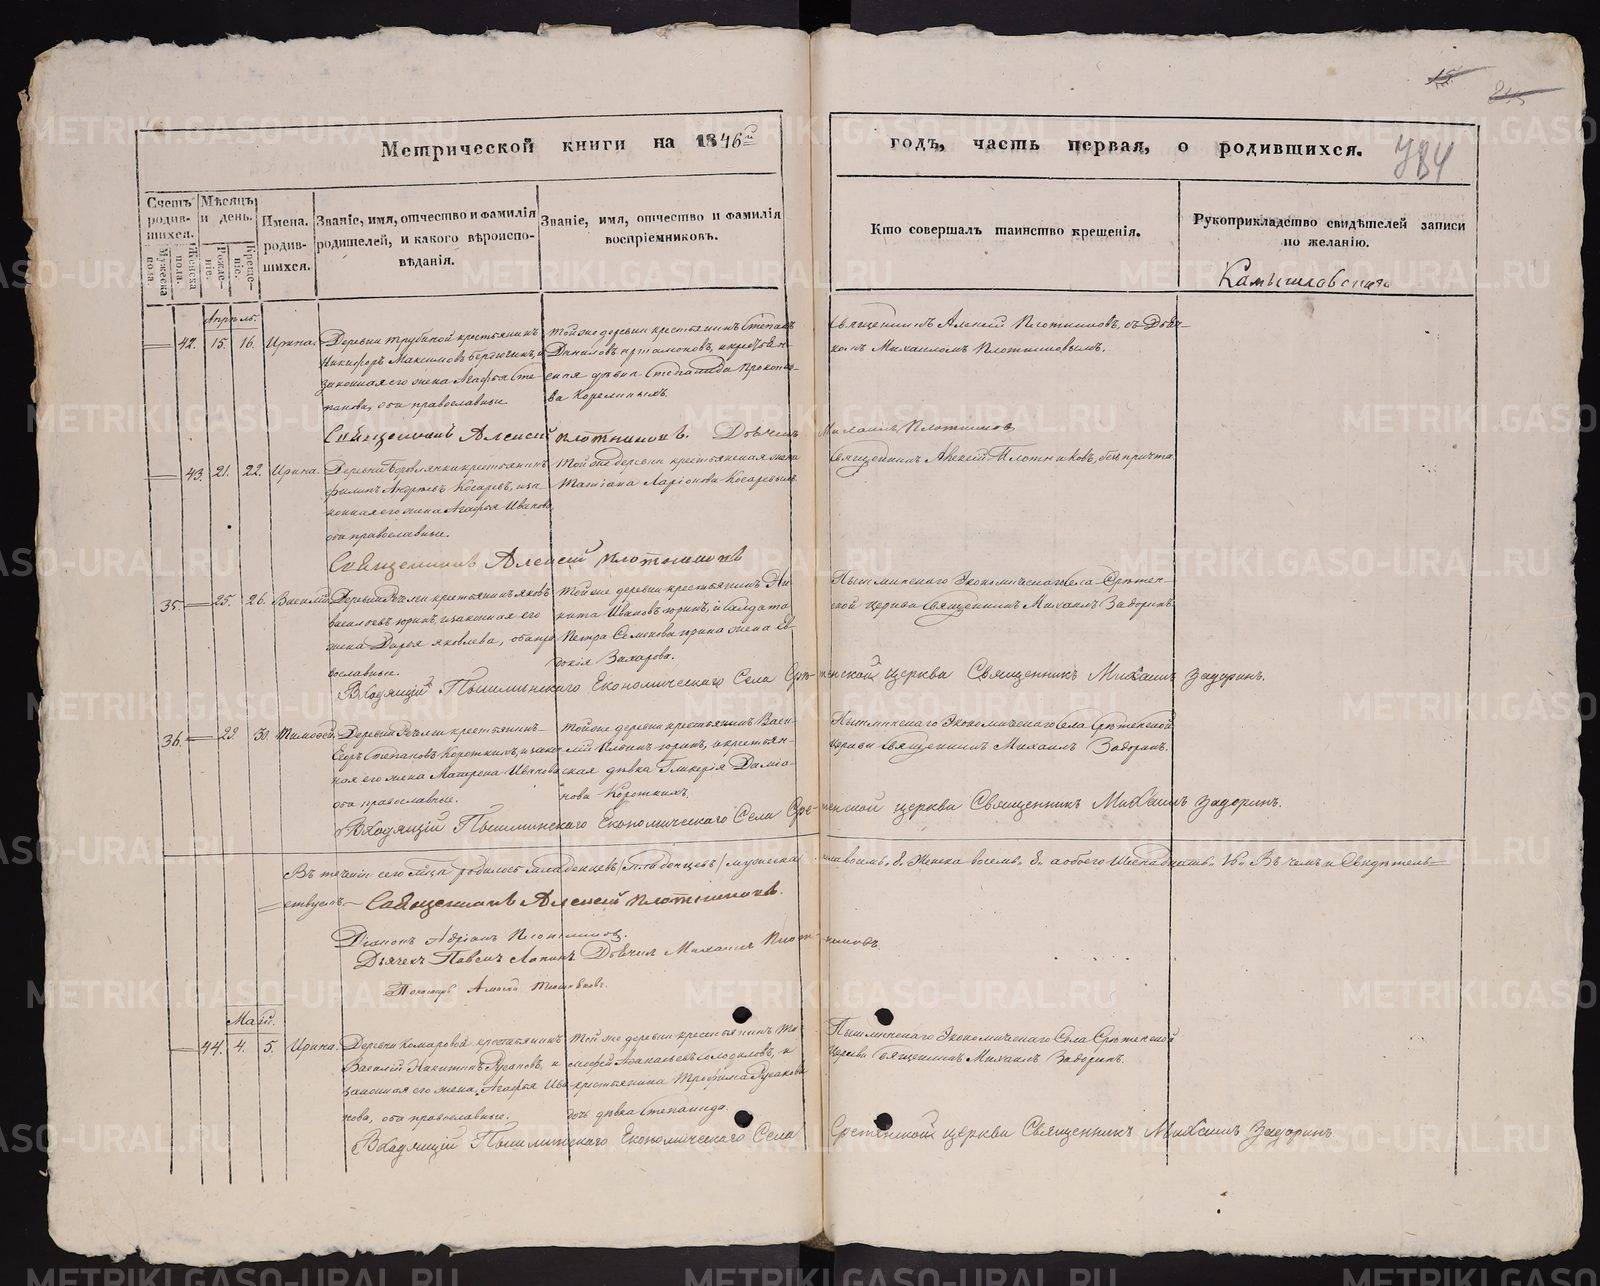 Метрической книги на 1846й
годъ, часть первая, о родившихся.
784
Счетъ родившихся.
Мужеска пола.
Женска пола.
Мѣсяцъ и день.
Рожденіе.
Крещеніе.
Имена родившихся.
Званіе, имя, отчество и фамилія
родителей, и какого вѣроиспо-
вѣданія.
Званіе, имя, отчество и фамилія
воспріемниковъ.
Кто совершалъ таинство крещенія.
Рукоприкладство свидѣтелей записи
по желанію.
Апрѣль.
42. 15. 16. Ирина.
Деревни Трубиной крестьянинъ
Никифоръ Максимовъ и
законная его жена Агафья Сте-
панова, оба православные
Тойже деревни крестьянинъ Степанъ
Даниловъ Артамоновъ, и крестьян-
ская дѣвка Степанида Прокопье-
ва Корелиныхъ.
Священникъ Алексій Плотниковъ, съ Дьяч-
комъ Михаиломъ Плотниковымъ.
Священникъ Алексій Плотниковъ. Дьячекъ Михаилъ Плотниковъ
43. 21. 22. Ирина.
Деревни крестьянинъ
Филипъ Андреевъ Косаревъ, и за-
конная его жена Агафья Иванова,
оба православные.
Тойже деревни крестьянская жена
Татіана Ларіонова Косаревыхъ.
Священникъ Алексій Плотниковъ, безъ причта
Священникъ Алексій Плотниковъ
35. 25. 26. Василій.
Деревни Речелги крестьянинъ Яковъ
Васильевъ Юринъ, и законная его
жена Дарья Яковлева, оба пра-
вославные.
Тойже деревни крестьянинъ Ни-
кита Ивановъ Юринъ, и солдата
Петра Семенова Юрина жена Ев-
докія Захарова.
Пышминскаго Экономическаго села Срѣтен-
ской церкви Священникъ Михаилъ Задоринъ.
Входящій Пышминскаго Економическаго Села Срѣтенской церкви Священникъ Михаилъ Задоринъ.
36. 29. 30. Тимофей.
Деревни Речелги крестьянинъ
Егоръ Степановъ Короткихъ, и закон-
ная его жена Матрена Иванова
оба православные.
Тойже деревни крестьянинъ Васи-
лій Юринъ, и крестьян-
ская дѣвка Гликерія Даміа-
нова Короткихъ.
Пышминскаго Экономическаго села Срѣтенской
церкви Священникъ Михаилъ Задоринъ.
Входящій Пышминскаго Економическаго Села Сретенской церкви Священникъ Михаилъ Задоринъ.
Въ теченіи сего мѣсяца родилось младенцевъ мужеска пола восемь. 8. Женска восемь. 8. а обоего шестнадцать. 16. Въ чемъ и Свидѣтель-
ствуемъ – Священникъ Алексій Плотниковъ.
Діаконъ Адріанъ Плотниковъ.
Дьячекъ Павелъ Лапинъ Дьячекъ Михаилъ Плотниковъ
Пономарь
Май.
44. 4. 5. Ирина.
Деревни Комаровой крестьянинъ
Василій Никитинъ Русановъ, и
законная его жена, Агафья Ива-
нова, оба православные.
Той же деревни крестьянинъ Ти-
мофей Солодиловъ, и
крестьянина Трофима Русакова
дочь дѣвка Степанида.
Пышминскаго Экономическаго Села Срѣтенской
Церкви Священникъ Михаилъ Задоринъ.
Входящій Пышминскаго Економическаго Села Сретенской церкви Священникъ Михаилъ Задоринъ
METRIKI.GASO-URAL.RU